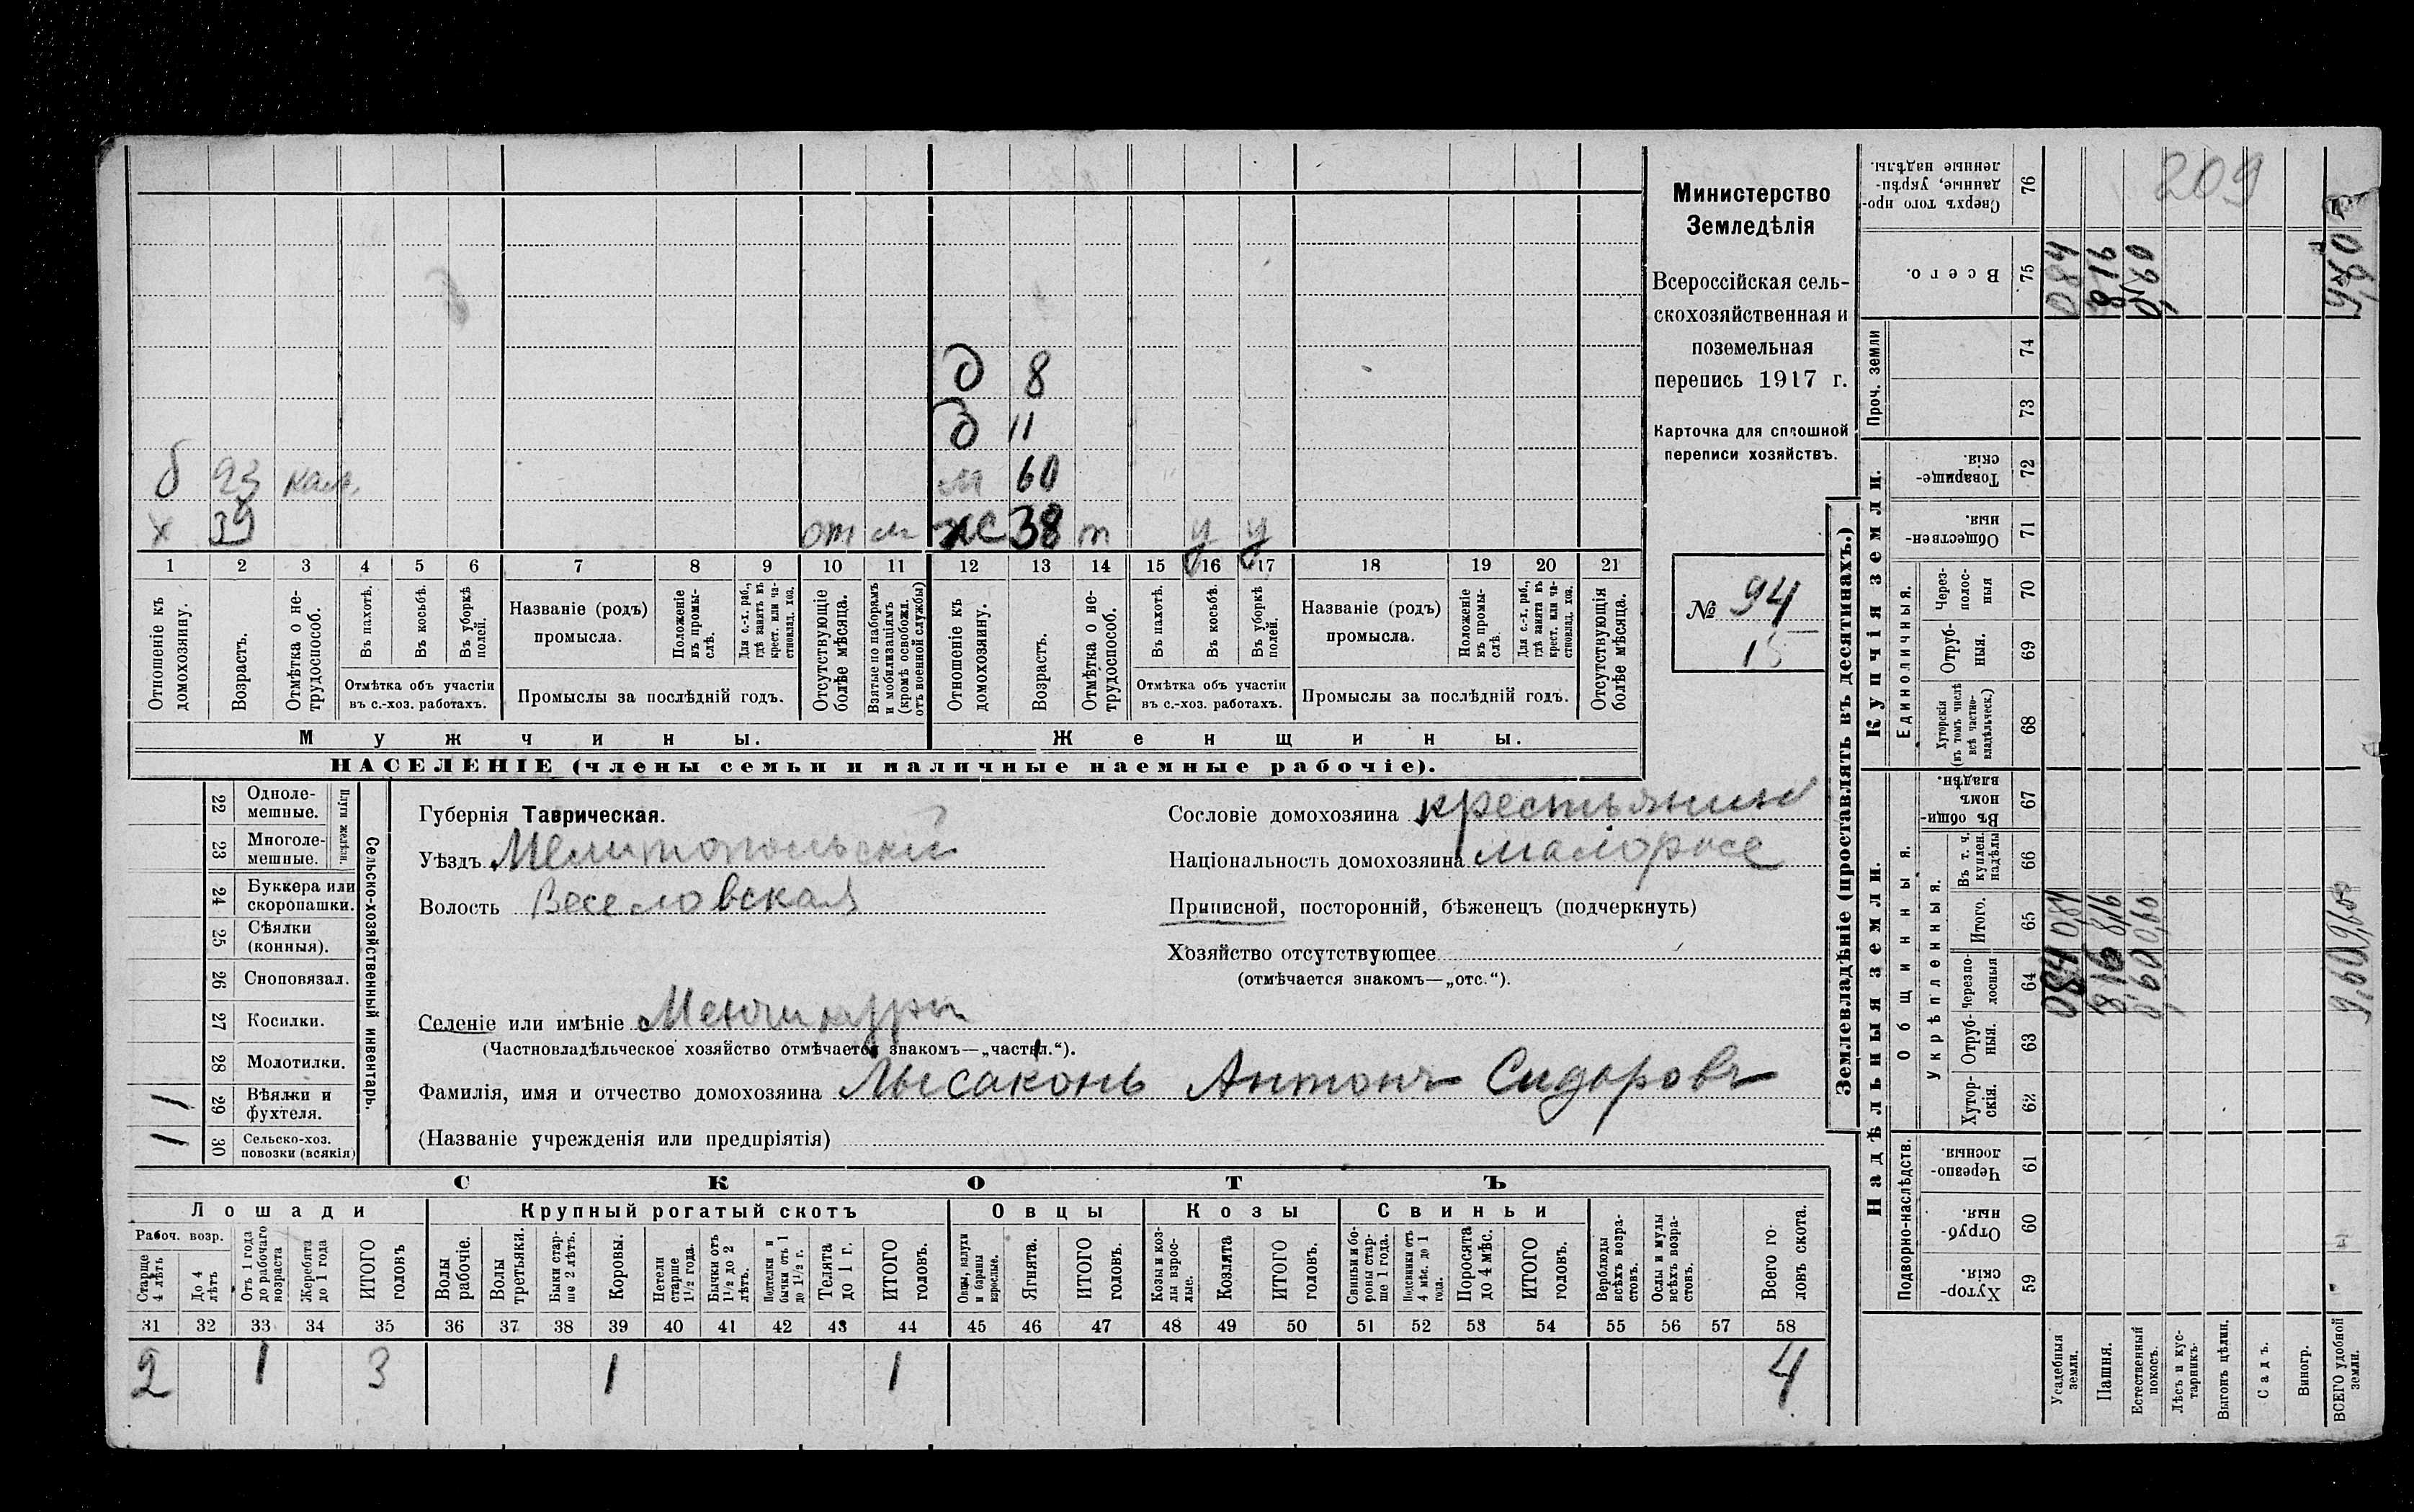 209
Министерство
Земледѣлія
Всероссійская сель-
скохозяйственная и
поземельная
перепись 1917 г.
Карточка для сплошной
переписи хозяйствъ.
№ 94
15
д 8
д 11
б 23 кал.
м 60
х 39 от м
ж 38 т у у
1 2 3 4 5 6 7 8 9 10 11 12 13 14 15 16 17 18 19 20 21
Отношеніе къ домохозяину.
Возрастъ.
Отмѣтка о не-трудоспособ.
Въ пахотѣ.
Въ косьбѣ.
Въ уборкѣ полей.
Отмѣтка объ участіи
въ с.-хоз. работахъ.
Названіе (родъ)
промысла.
Положеніе въ промы-слѣ.
Для с.-х. раб., гдѣ занятъ въ крест. или ча-стновлад. хоз.
Промыслы за послѣдній годъ.
Отсутствующіе болѣе мѣсяца.
Взятые по наборамъ и мобилизаціямъ (кромѣ освобожд. отъ военной службы)
Отношеніе къ домохозяину.
Возрастъ.
Отмѣтка о не-трудоспособ.
Въ пахотѣ.
Въ косьбѣ.
Въ уборкѣ полей.
Отмѣтка объ участіи
въ с.-хоз. работахъ.
Названіе (родъ)
промысла.
Положеніе въ промы-слѣ.
Для с.-х. раб., гдѣ занята въ крест. или ча-стновлад. хоз.
Промыслы за послѣдній годъ.
Отсутствующія болѣе мѣсяца.
Мужчины.
Женщины.
НАСЕЛЕНІЕ (члены семьи и наличные наемные рабочіе).
Сельско-хозяйственный инвентарь.
Плуги желѣзн.
22 Одноле-мешные.
23 Многоле-мешные.
24 Буккера или скоропашки.
25 Сѣялки (конныя).
26 Сноповязал.
27 Косилки.
28 Молотилки.
1 29 Вѣялки и фухтеля.
1 30 Сельско-хоз. повозки (всякія)
Губернія Таврическая.
Уѣздъ Мелитопольскій
Волость Веселовская
Сословіе домохозяина крестьянин
Національность домохозяина малоросс
Приписной, посторонній, бѣженецъ (подчеркнуть)
Хозяйство отсутствующее
(отмѣчается знакомъ—„отс.“).
Селеніе или имѣніе Менчикуры
(Частновладѣльческое хозяйство отмѣчается знакомъ—„частвл.“).
Фамилія, имя и отчество домохозяина Лысаконь Антонъ Сидоровъ
(Названіе учрежденія или предпріятія)
СКОТЪ
Лошади
Крупный рогатый скотъ
Овцы
Козы
Свиньи
Рабоч. возр.
Старше 4 лѣтъ
До 4 лѣтъ
Отъ 1 года до рабочаго возраста
Жеребята до 1 года
ИТОГО головъ
Волы рабочіе.
Волы третьяки.
Быки стар-ше 2 лѣтъ.
Коровы.
Нетели старше 1½ года.
Бычки отъ 1½ до 2 лѣтъ.
Подтелки и бычки отъ 1 до 1½ г.
Телята до 1 г.
ИТОГО головъ.
Овцы, валухи и бараны взрослые.
Ягнята.
ИТОГО головъ.
Козы и коз-лы взрос-лые.
Козлята
ИТОГО головъ.
Свиньи и бо-ровы стар-ше 1 года.
Подсвинки отъ 4 мѣс. до 1 года.
Поросята до 4 мѣс.
ИТОГО головъ.
Верблюды всѣхъ возра-стовъ.
Ослы и мулы всѣхъ возра-стовъ.
Всего го-ловъ скота.
31 32 33 34 35 36 37 38 39 40 41 42 43 44 45 46 47 48 49 50 51 52 53 54 55 56 57 58
2 1 3 1 1 4
Землевладѣніе (проставлять въ десятинахъ.)
Надѣльныя земли.
Купчія земли.
Проч. земли
Подворно-наслѣдств.
Общинныя.
Укрѣпленныя.
Единоличныя.
Хутор-скія. 59
Отруб-ныя. 60
Черезпо-лосныя. 61
Хутор-скія. 62
Отруб-ныя. 63
Черезпо-лосныя 64
Итого. 65
Въ т. ч. куплен. надѣлы 66
Въ общи-номъ владѣн. 67
Хуторскія (въ томъ числѣ всѣ частно-владѣльческ.) 68
Отруб-ныя. 69
Через-полос-ныя 70
Обществен-ныя. 71
Товарище-скія. 72
73
74
Всего. 75
Сверхъ того про-данные, укрѣп-ленные надѣлы. 76
Усадебныя земли. 084 084 084
Пашня. 816 816 816
Естественный покосъ. 0,60 0,60 0,60
Лѣсъ и кус-тарникъ.
Выгонъ цѣлин.
Садъ.
Виногр.
ВСЕГО удобной земли. 9,60 9,60